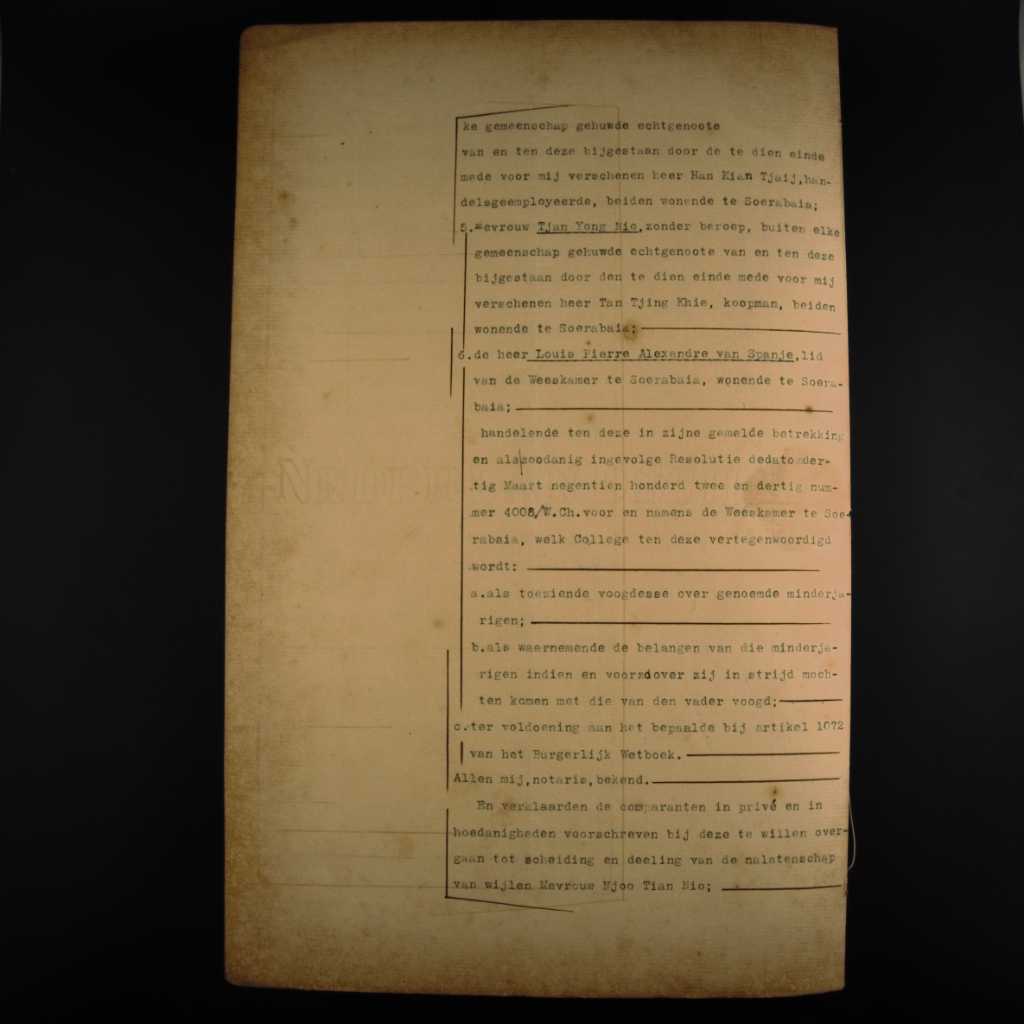 ke gemeenschap gehuwde echtgenoote
van en ten deze bijgestaan door de te dien einde
mede voor mij verschenen heer Han Kian Tjaij,han-
delsgeemployeerde, beiden wonende te Soerabaia;
5.Mevrouw Tjan Yong Nio,zonder beroep, buiten elke
gemeenschap gehuwde echtgenoote van en ten deze
bijgestaan door den te dien einde mede voor mij
verschenen heer Tan Tjing Khie, koopman, beiden
wonende te Soerabaia;
6.de heer Louis Pierre Alexandre van Spanje,lid
van de Weeskamer te Soerabaia, wonende te Soera-
baia;
handelende ten deze in zijne gemelde betrekking
en als zoodanig ingevolge Resolutie dedato der-
tig Maart negentien honderd twee en dertig num-
mer 4008/W.Ch.voor en namens de Weeskamer te Soe-
rabaia, welk College ten deze vertegenwoordigd
wordt:
a.als toeziende voogdesse over genoemde minderja-
rigen;
b.als waarnemende de belangen van die minderja-
rigen indien en voorzoover zij in strijd moch-
ten komen met die van den vader voogd;
c.ter voldoening aan het bepaalde bij artikel 1072
van het Burgerlijk Wetboek.
Allen mij,notaris,bekend.
En verklaarden de comparanten in privé en in
hoedanigheden voorschreven bij deze te willen over-
gaan tot scheiding en deeling van de nalatenschap
van wijlen Mevrouw Njoo Tian Nio;